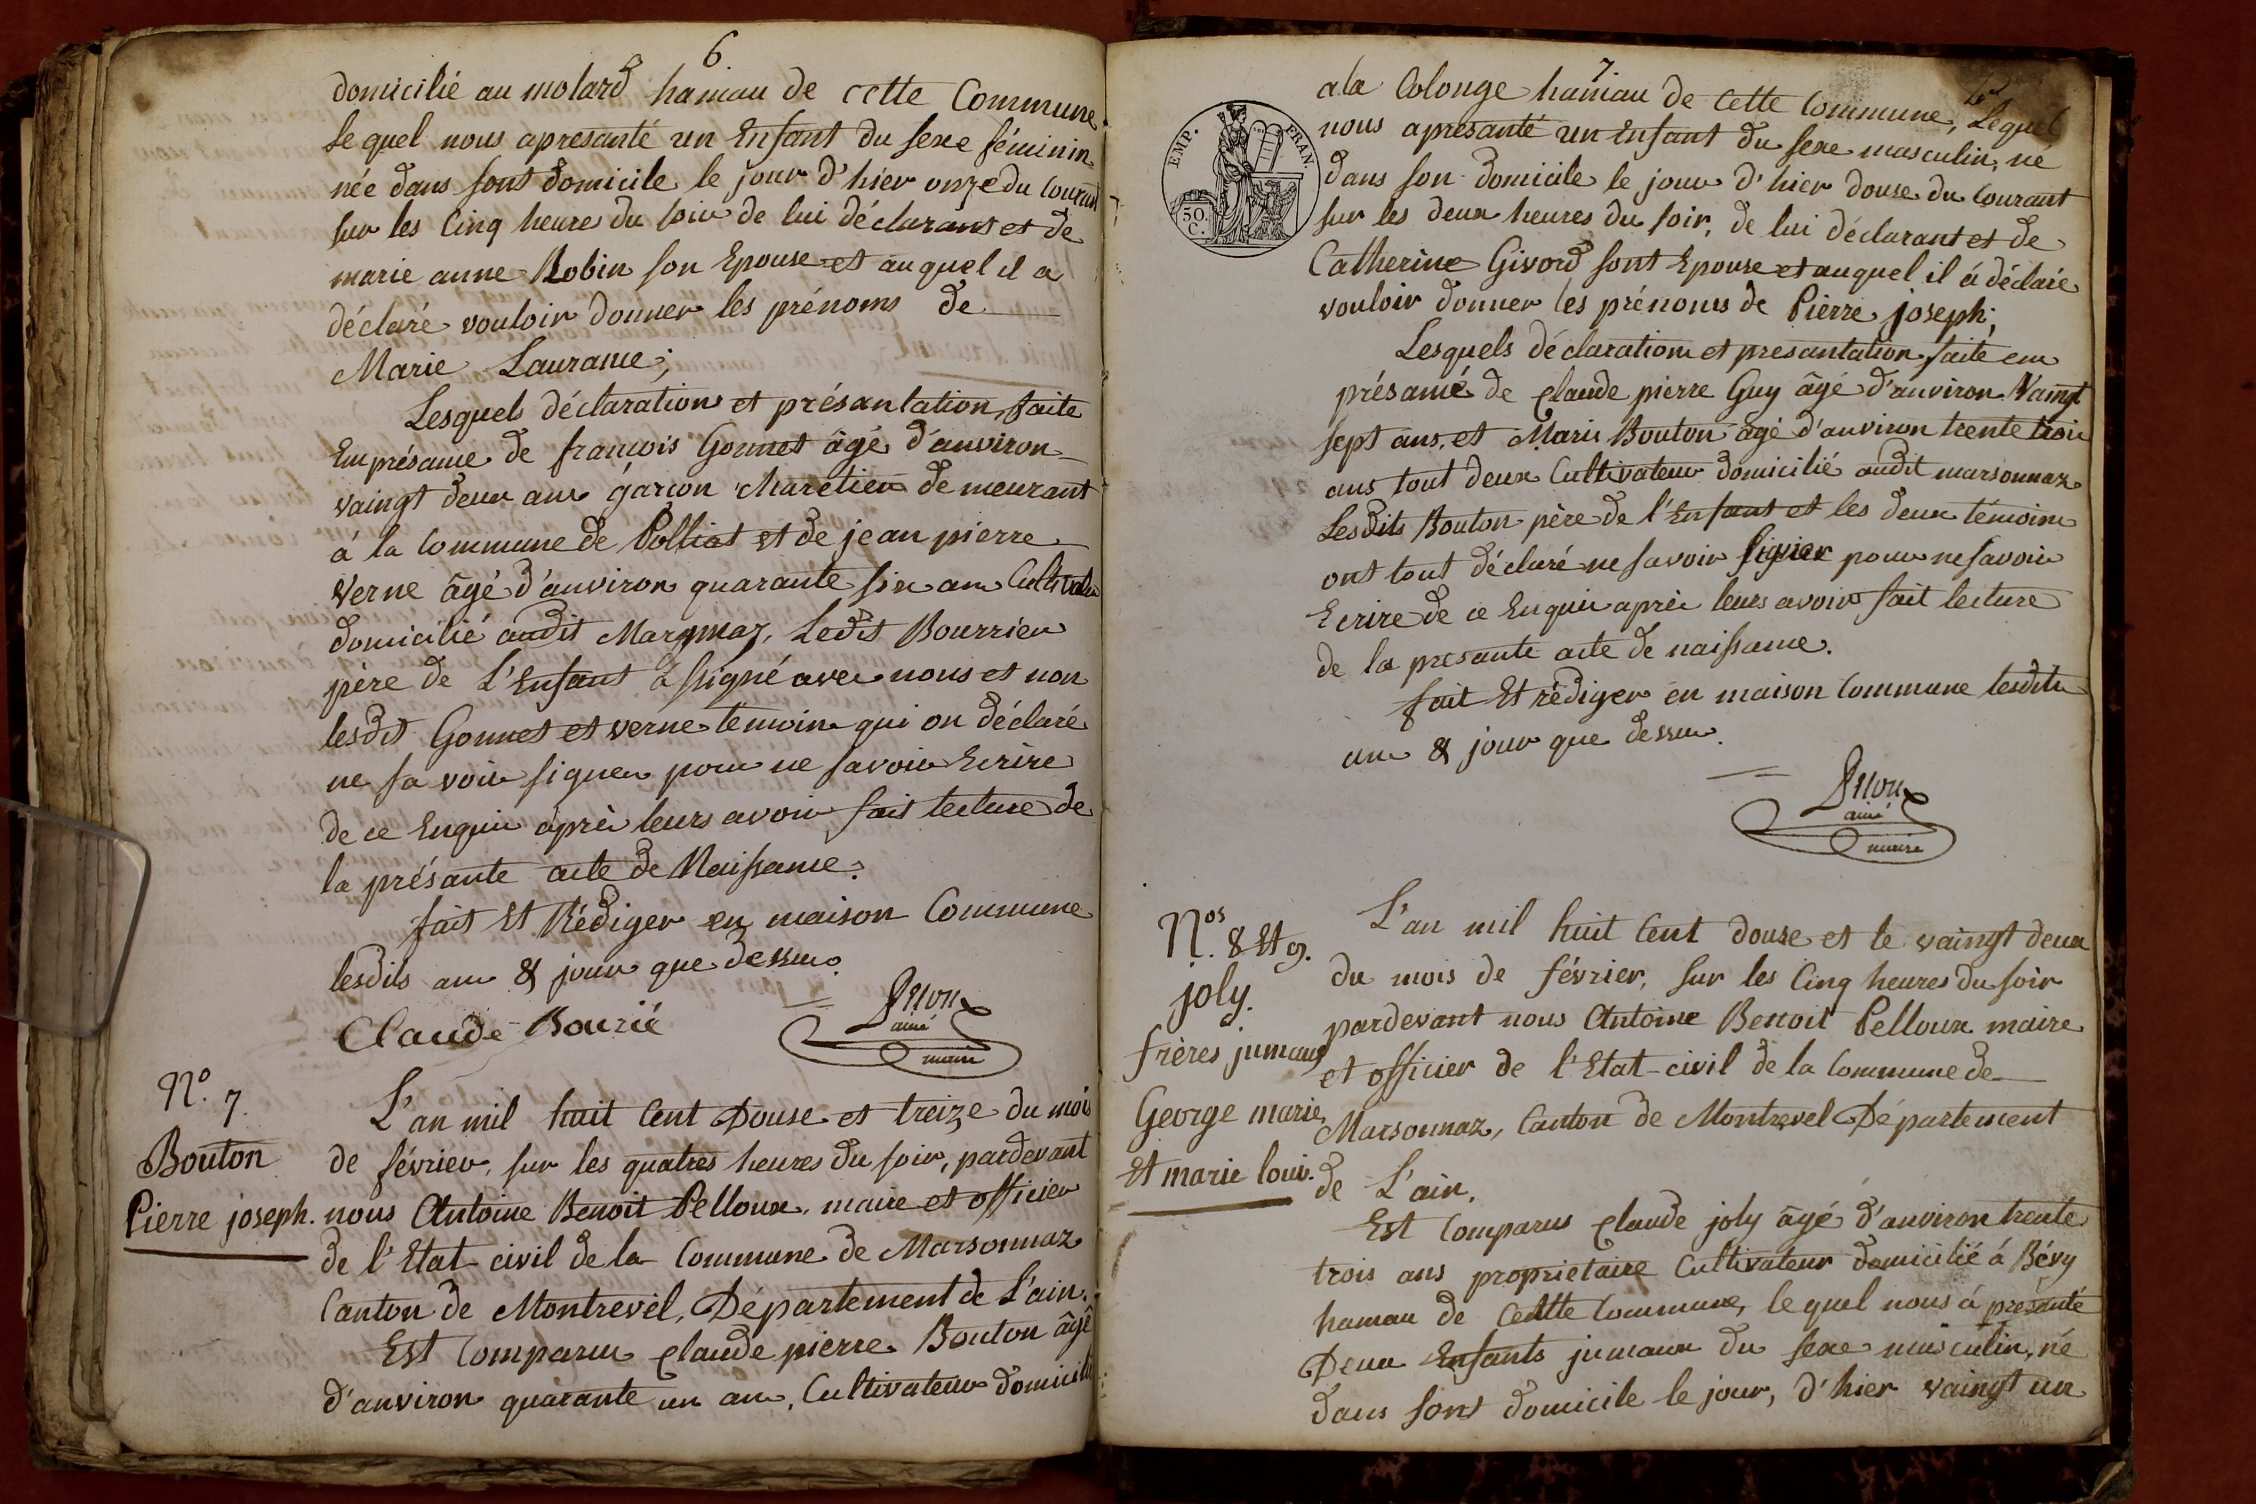 6
domicilié au molard hamau de cette Commune
Le quel nous apresanté un Enfant du sexe féminin
née dans sont domicile le jour d'hier onze du Courant
sur les Cinq heure du soir de lui déclarant et de
marie anne Robin son Epouse et auquel il a
déclaré vouloir donner les prénoms de
Marie Laurance;
Lesquels déclaration et présantation, faite
En présance de françois Gonnet âgé d'anviron
vaingt deux ans garçon Charetier demeurant
á la Commune de Polliat et de jean pierre
Verne âgé d'anviron quarante six ans Cultivateur
domicilié audit Marsonnaz, Ledit Bourrier
père de L'Enfant à signé avec nous et non
lesdit Gonnet et verne témoins qui on déclaré
ne sa voir signer pour ne savoir Ecrire
de ce Enquis après leurs avoir fait lecture de
la présante acte de Naissance.
fait Et Rédiger en maison Commune
lesdits ans & jour que dessus.
Claude Bourié
ainé
maire
N.º 7.
Bouton
Pierre joseph.
L'an mil huit Cent Douse et treize du mois
de février, sur les quatres heures du soir, pardevant
nous Antoine Benoit Pelloux, maire et officier
de l'Etat-civil de la Commune de Marsonnaz
Canton de Montrevel, Département de L'ain.
Est Comparus Claude pierre Bouton âgé
d'anviron quarante un ans, Cultivateur domicilié
7
EMP. FRAN.
50.
C.
ala Colonge hamau de Cette Commune, Lequel
nous apresanté un Enfant du sexe masculin, né
dans son domicile le jour d'hier douse du Courant
sur les deux heures du soir, de lui déclarant et de
Catherine Givord sont Epouse et auquel il á déclaré
vouloir donner les prénoms de Pierre joseph;
Lesquels déclarations et presantation faite en
présance de Claude pierre Guy âgé d'anviron Vaingt
sept ans, et Marie Bouton âgé d'anviron trente trois
ans tout deux Cultivateur domicilié audit marsonnaz
Lesdits Bouton père de l'Enfant et les deux témoins
ont tout déclaré ne savoir signer pour ne savoir
Ecrire de ce Enquis après leurs avoir fait lecture
de la presante acte de naissance.
fait Et rédiger en maison Commune lesdits
ans & jour que dessus.
ainé
maire
N.os 8 Et 9.
joly.
frères jumaux
George marie,
Et marie louis.
L'an mil huit Cent douse et le vaingt deux
du mois de février, sur les Cinq heures du soir
pardevant nous Antoine Benoit Pelloux maire
et officier de l'Etat-civil de la Commune de
Marsonnaz, Canton de Montrevel Département
de L'ain.
Est Comparus Claude joly âgé d'anviron trente
trois ans proprietaire Cultivateur domicilié á Bévy
hamau de Cette Commune, le quel nous á présanté
Deux Enfants jumaux du sexe masculin, né
dans sont domicile le jour, d'hier vaingt un